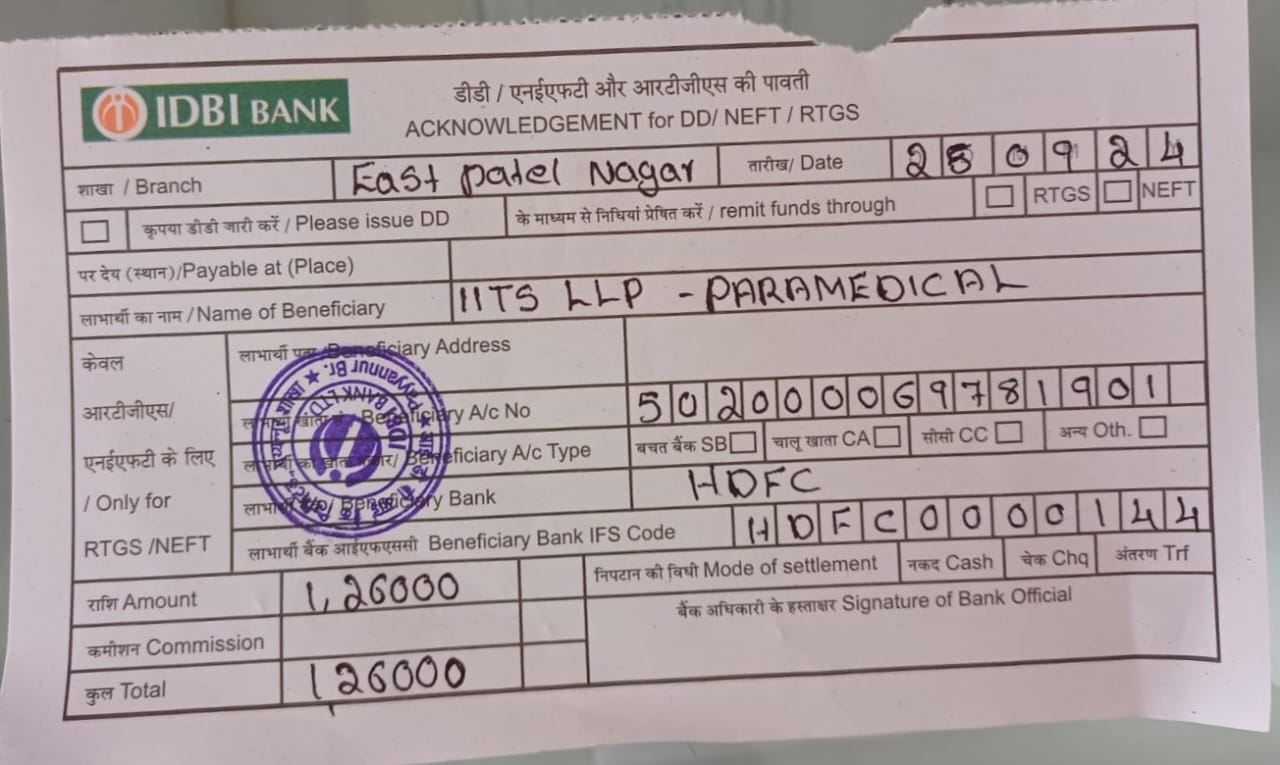 IDBI BANK
डीडी / एनईएफटी और आरटीजीएस की पावती
ACKNOWLEDGEMENT for DD/ NEFT / RTGS
शाखा / Branch East patel Nagar तारीख/ Date 2 0 9 2 4
कृपया डीडी जारी करें / Please issue DD के माध्यम से निधियां प्रेषित करें / remit funds through RTGS NEFT
पर देय (स्थान)/Payable at (Place)
लाभार्थी का नाम / Name of Beneficiary IITS LLP - PARAMEDICAL
केवल
आरटीजीएस/
एनईएफटी के लिए
/ Only for
RTGS /NEFT
लाभार्थी Beneficiary Address
Beneficiary A/c No 502000069781901
Beneficiary A/c Type बचत बैंक SB चालू खाता CA सीसी CC अन्य Oth.
Beneficiary Bank HDFC
लाभार्थी बैंक आईएफएससी Beneficiary Bank IFS Code HDFC0000144
राशि Amount 1,26000
निपटान की विधी Mode of settlement नकद Cash चेक Chq अंतरण Trf
कमीशन Commission
बैंक अधिकारी के हस्ताक्षर Signature of Bank Official
कुल Total 1,26000
Payyannur Br.
IDBI BANK LTD